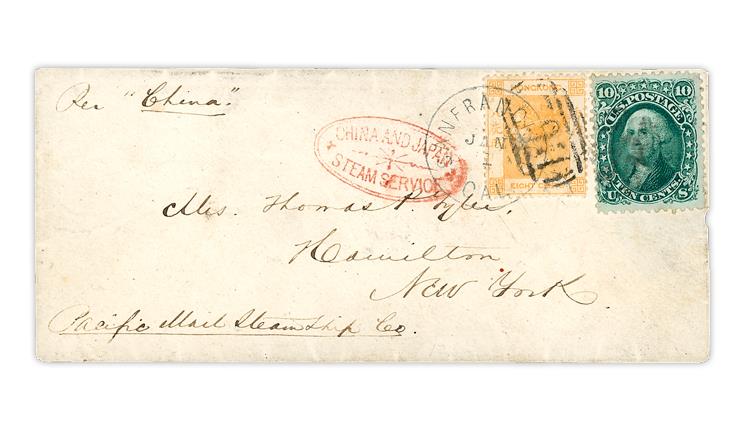 Per "China".
CHINA AND JAPAN
STEAM SERVICE
SAN FRANCISCO
JAN
CAL
HONG KONG
EIGHT CENTS
10 U.S. POSTAGE 10
TEN CENTS
U S
Mrs. Thomas T. Tyler,
Hamilton
New York.
Pacific Mail Steamship Co.